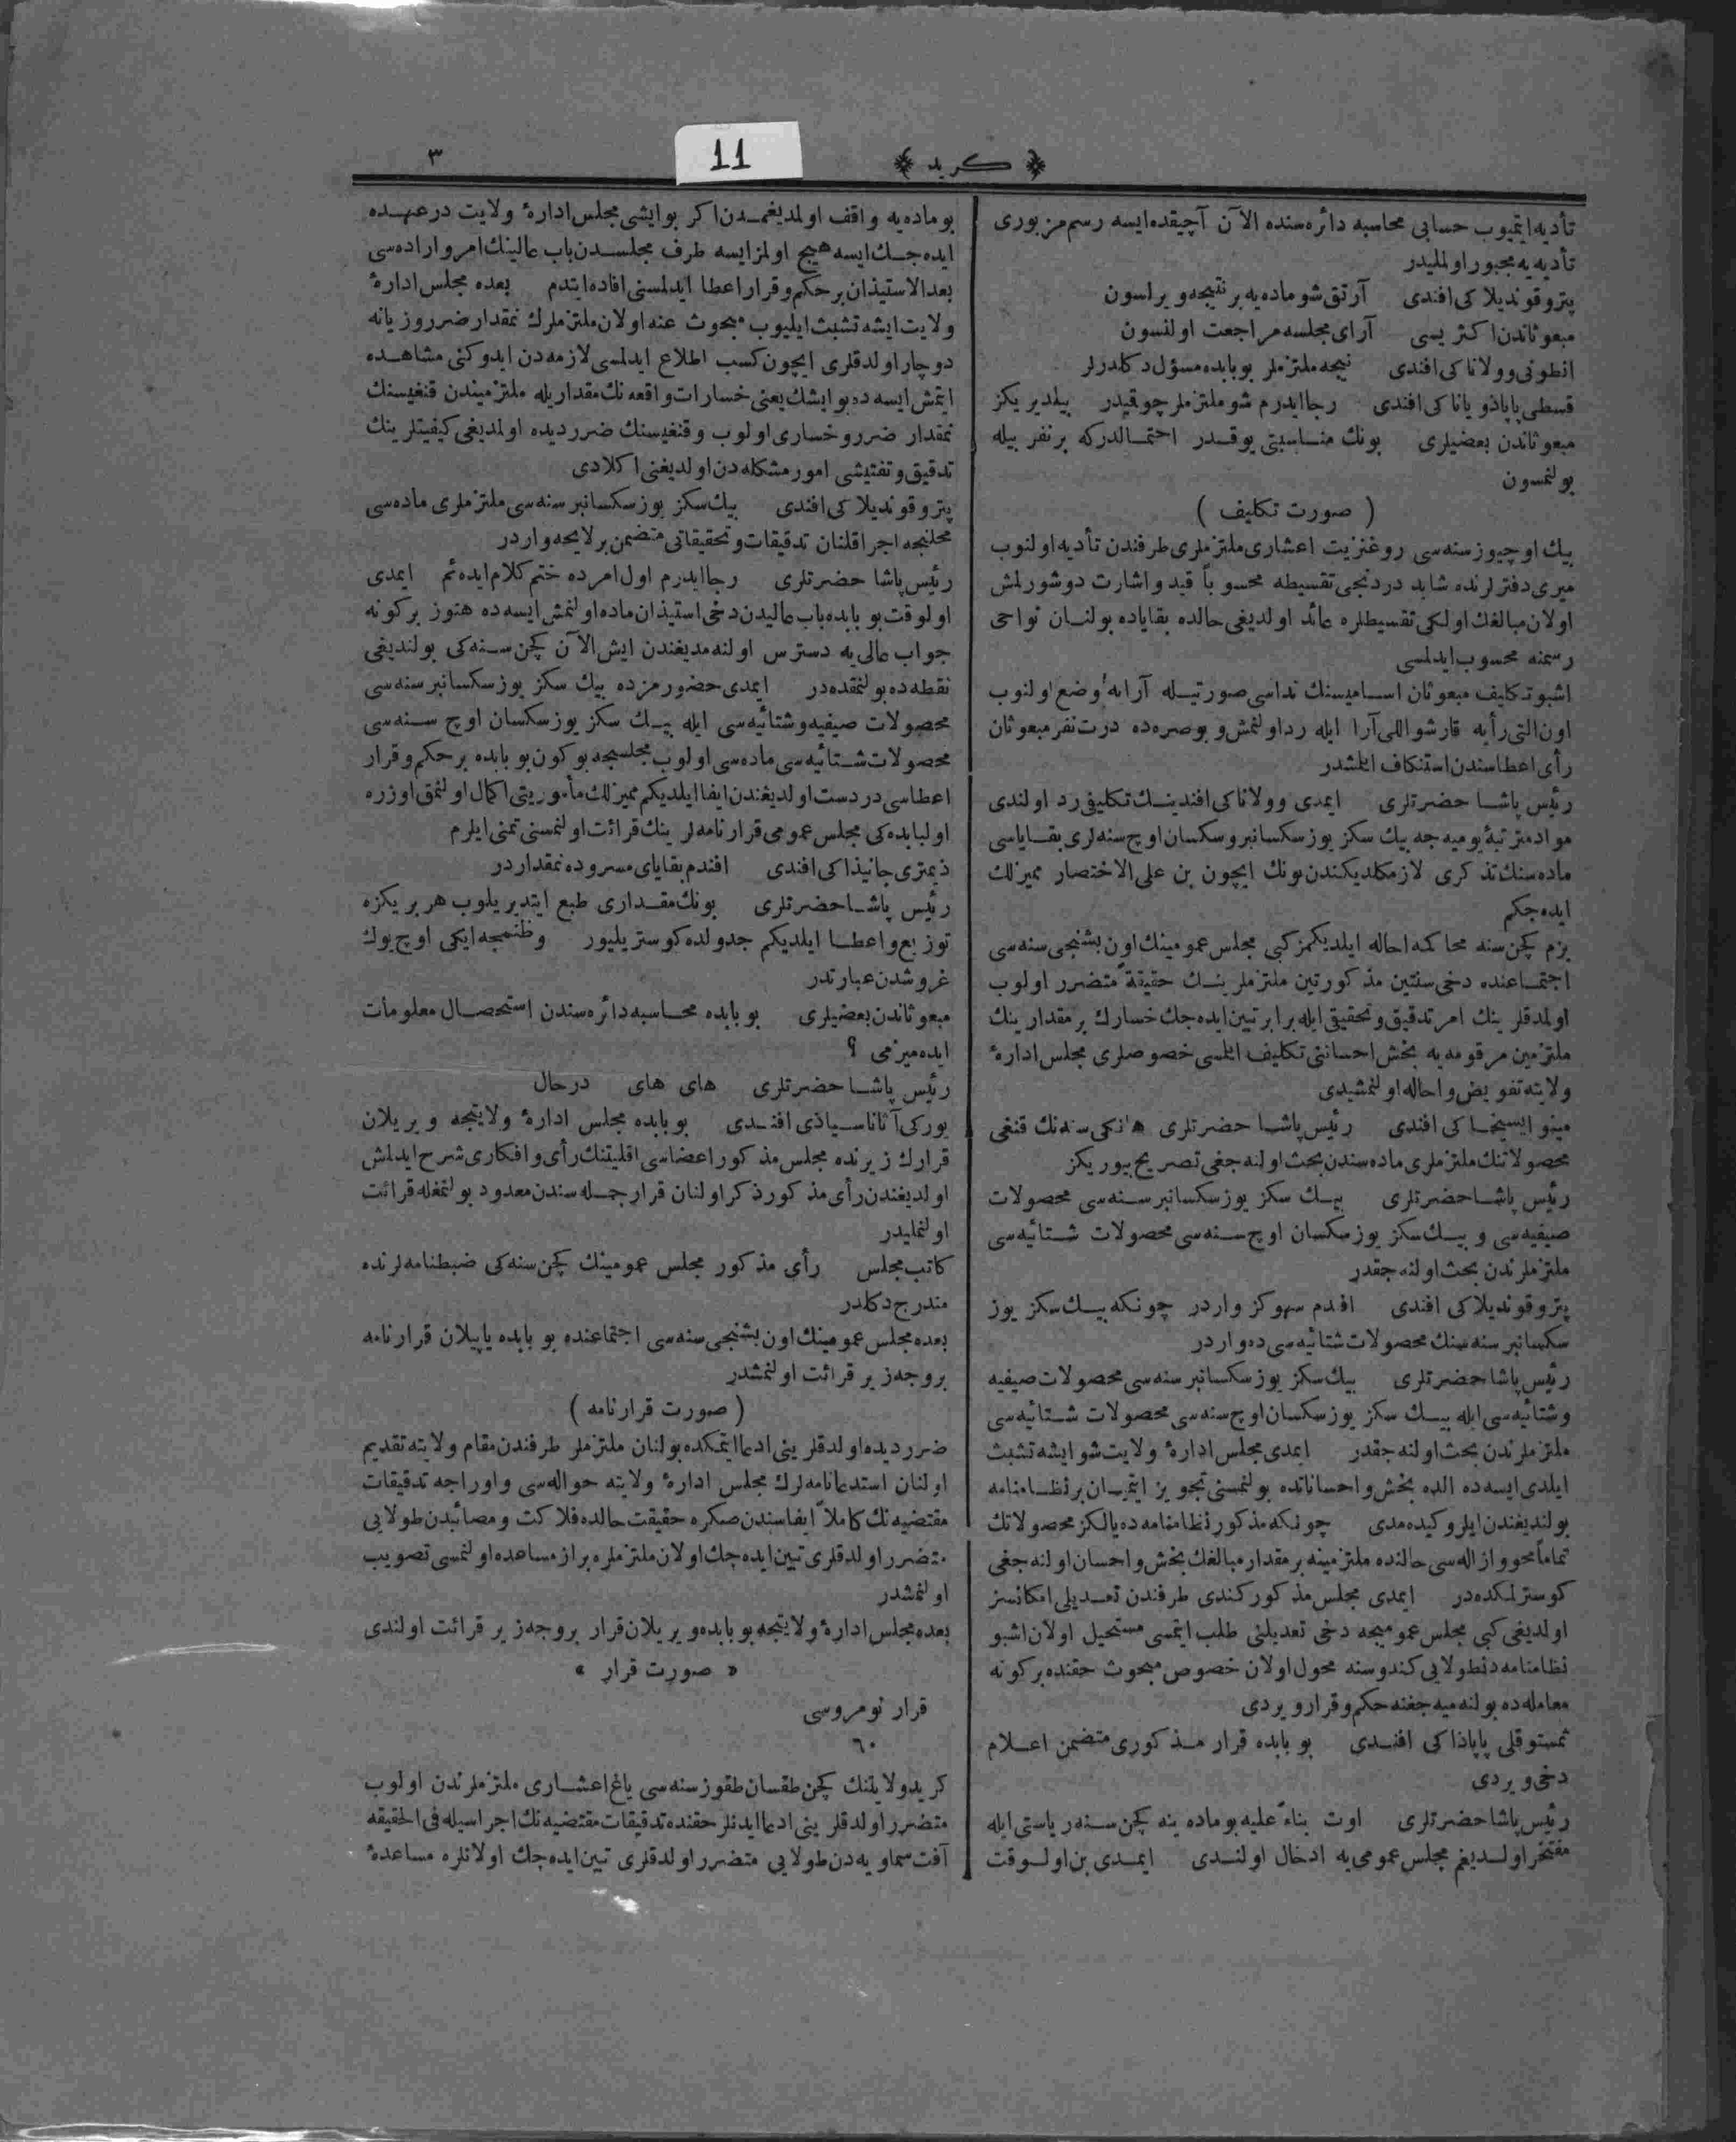 ﴿ كريد ﴾
11
٣
تأديه ايتميوب حسابى محاسبه دائره‌سنده الآن آچيقده ايسه رسم مزبورى
تأديه يه مجبور اولمليدر
پترو قونديلاكى افندى آرتق شو ماده‌يه بر نتيجه ويرلسون
مبعوثاندن اكثريسى آراى مجلسه مراجعت اولنسون
انطونى وولاناكى افندى نيجه ملتزملر بو بابده مسؤل دكلدرلر
قسطى پاپادوياناكى افندى رجا ايدرم شو ملتزملر چوقيدر بيلديريكز
مبعوثاندن بعضيلرى بونك مناسبتى يوقدر احتمالدركه بر نفر بيله
بولنمسون
( صورت تكليف )
بيك اوچيوز سنه‌سى روغنزيت اعشارى ملتزملرى طرفندن تأديه اولنوب
ميرى دفترلرنده شايد دردنجى تقسيطه محسوباً قيد و اشارت دوشورلمش
اولان مبالغك اولكى تقسيطلره عائد اولديغى حالده بقاياده بولنان نواحى
رسمنه محسوب ايدلمسى
اشبو تكليف مبعوثان اساميسنك نداسى صورتيله آرايه وضع اولنوب
اون التى رأيه قارشو اللى آرا ايله رد اولنمش و بوصره‌ده درت نفر مبعوثان
رأى اعطاسندن استنكاف ايلمشدر
رئيس پاشا حضرتلرى ايمدى وولاناكى افندينك تكليفى رد اولندى
مواد مترتبۀ يوميه‌جه بيك سكز يوز سكسانبر و سكسان اوچ سنه‌لرى بقاياسى
ماده‌سنك تذكرى لازمكلديكندن بونك ايچون بن على الاختصار مميزلك
ايده‌جكم
بزم كچن سنه محاكمه احاله ايلديكمز كبى مجلس عمومينك اون بشنجى سنه‌سى
اجتماعنده دخى سنتين مذكورتين ملتزملرينك حقيقةً متضرر اولوب
اولمدقلرينك امر تدقيق و تحقيقى ايله برابر تبين ايده‌جك خسارك بر مقدارينك
ملتزمين مرقومه‌يه بخش احساننى تكليف ايلمسى خصوصلرى مجلس ادارۀ
ولايته تفويض و احاله اولنمشيدى
مينو ايسيخاكى افندى رئيس پاشا حضرتلرى هانكى سنه‌نك قنغى
محصولاتنك ملتزملرى ماده‌سندن بحث اولنه‌جغى تصريح بيوريكز
رئيس پاشا حضرتلرى بيك سكز يوز سكسانبر سنه‌سى محصولات
صيفيه‌سى و بيك سكز يوز سكسان اوچ سنه‌سى محصولات شتائيه‌سى
ملتزملرندن بحث اولنه‌جقدر
پترو قونديلاكى افندى افندم سهوكز واردر چونكه بيك سكز يوز
سكسانبر سنه‌سنك محصولات شتائيه‌سى ده واردر
رئيس پاشا حضرتلرى بيك سكز يوز سكسانبر سنه‌سى محصولات صيفيه
و شتائيه‌سى ايله بيك سكز يوز سكسان اوچ سنه‌سى محصولات شتائيه‌سى
ملتزملرندن بحث اولنه‌جقدر ايمدى مجلس ادارۀ ولايت شو ايشه تشبث
ايلدى ايسه‌ده الده بخش و احساناتده بولنمسنى تجويز ايتميان بر نظامنامه
بولنديغندن ايلرو كيده‌مدى چونكه مذكور نظامنامه‌ده يالكز محصولاتك
تماماً محو و ازاله‌سى حالنده ملتزمينه بر مقدار مبالغك بخش و احسان اولنه‌جغى
كوسترلمكده‌در ايمدى مجلس مذكور كندى طرفندن تعديلى امكانسز
اولديغى كبى مجلس عموميجه دخى تعديلنى طلب ايتمسى مستحيل اولان اشبو
نظامنامه‌دن طولايى كندوسنه محول اولان خصوص مبحوث حقنده بر كونه
معامله‌ده بولنه‌ميه‌جغنه حكم و قرار ويردى
ثمستوقلى پاپاذاكى افندى بو بابده قرار مذكورى متضمن اعلام
دخى ويردى
رئيس پاشا حضرتلرى اوت بناءً عليه بو ماده ينه كچن سنه رياستى ايله
مفتخر اولديغم مجلس عمومى‌يه ادخال اولندى ايمدى بن اولوقت
بو ماده‌يه واقف اولمديغمدن اكر بو ايشى مجلس ادارۀ ولايت درعهده
ايده‌جك ايسه هيچ اولمز ايسه طرف مجلسدن باب عالينك امر و اراده‌سى
بعد الاستيذان بر حكم و قرار اعطا ايدلمسنى افاده ايتدم بعده مجلس ادارۀ
ولايت ايشه تشبث ايليوب مبحوث عنه اولان ملتزملرك نمقدار ضرر و زيانه
دوچار اولدقلرى ايچون كسب اطلاع ايدلمسى لازمه‌دن ايدوكنى مشاهده
ايتمش ايسه‌ده بو ايشك يعنى خسارات واقعه‌نك مقداريله ملتزميندن قنغيسنك
نمقدار ضرر و خسارى اولوب و قنغيسنك ضررديده اولمديغى كيفيتلرينك
تدقيق و تفتيشى امور مشكله‌دن اولديغنى اكلادى
پترو قونديلاكى افندى بيك سكز يوز سكسانبر سنه‌سى ملتزملرى ماده‌سى
محلنجه اجرا قلنان تدقيقات و تحقيقاتى متضمن بر لايحه واردر
رئيس پاشا حضرتلرى رجا ايدرم اول امرده ختم كلام ايده‌يم ايمدى
اولوقت بو بابده باب عاليدن دخى استيذان ماده اولنمش ايسه‌ده هنوز بر كونه
جواب عالى‌يه دسترس اولنه‌مديغندن ايش الآن كچن سنه‌كى بولنديغى
نقطه‌ده بولنمقده‌در ايمدى حضورمزده بيك سكز يوز سكسانبر سنه‌سى
محصولات صيفيه و شتائيه‌سى ايله بيك سكز يوز سكسان اوچ سنه‌سى
محصولات شتائيه‌سى ماده‌سى اولوب مجلسجه بوكون بو بابده بر حكم و قرار
اعطاسى دردست اولديغندن ايفا ايلديكم مميزلك مأموريتى اكمال اولنمق اوزره
اولبابده‌كى مجلس عمومى قرارنامه‌لرينك قرائت اولنمسنى تمنى ايلرم
ذيمترى جانيذاكى افندى افندم بقاياى مسروده نمقداردر
رئيس پاشا حضرتلرى بونك مقدارى طبع ايتديريلوب هر بريكزه
توزيع و اعطا ايلديكم جدولده كوستريليور و ظنمجه ايكى اوچ يوك
غروشدن عبارتدر
مبعوثاندن بعضيلرى بو بابده محاسبه دائره‌سندن استحصال معلومات
ايده‌ميزمى ؟
رئيس پاشا حضرتلرى هاى هاى درحال
يوركى آثاناسياذى افندى بو بابده مجلس ادارۀ ولايتجه ويريلان
قرارك زيرنده مجلس مذكور اعضاسى اقليتنك رأى و افكارى شرح ايدلمش
اولديغندن رأى مذكور ذكر اولنان قرار جمله‌سندن معدود بولنمغله قرائت
اولنمليدر
كاتب مجلس رأى مذكور مجلس عمومينك كچن سنه‌كى ضبطنامه‌لرنده
مندرج دكلدر
بعده مجلس عمومينك اون بشنجى سنه‌سى اجتماعنده بو بابده ياپيلان قرارنامه
بروجه زير قرائت اولنمشدر
( صورت قرارنامه )
ضررديده اولدقلرينى ادعا ايتمكده بولنان ملتزملر طرفندن مقام ولايته تقديم
اولنان استدعانامه‌لرك مجلس ادارۀ ولايته حواله‌سى و اوراجه تدقيقات
مقتضيه‌نك كاملاً ايفاسندن صكره حقيقت حالده فلاكت و مصائبدن طولايى
متضرر اولدقلرى تبين ايده‌جك اولان ملتزملره براز مساعده اولنمسى تصويب
اولنمشدر
بعده مجلس ادارۀ ولايتجه بو بابده ويريلان قرار بروجه زير قرائت اولندى
« صورت قرار »
قرار نومروسى
٦٠
كريد ولايتنك كچن طقسان طقوز سنه‌سى ياغ اعشارى ملتزملرندن اولوب
متضرر اولدقلرينى ادعا ايدنلر حقنده تدقيقات مقتضيه‌نك اجراسيله فى الحقيقه
آفت سماويه‌دن طولايى متضرر اولدقلرى تبين ايده‌جك اولانلره مساعدۀ